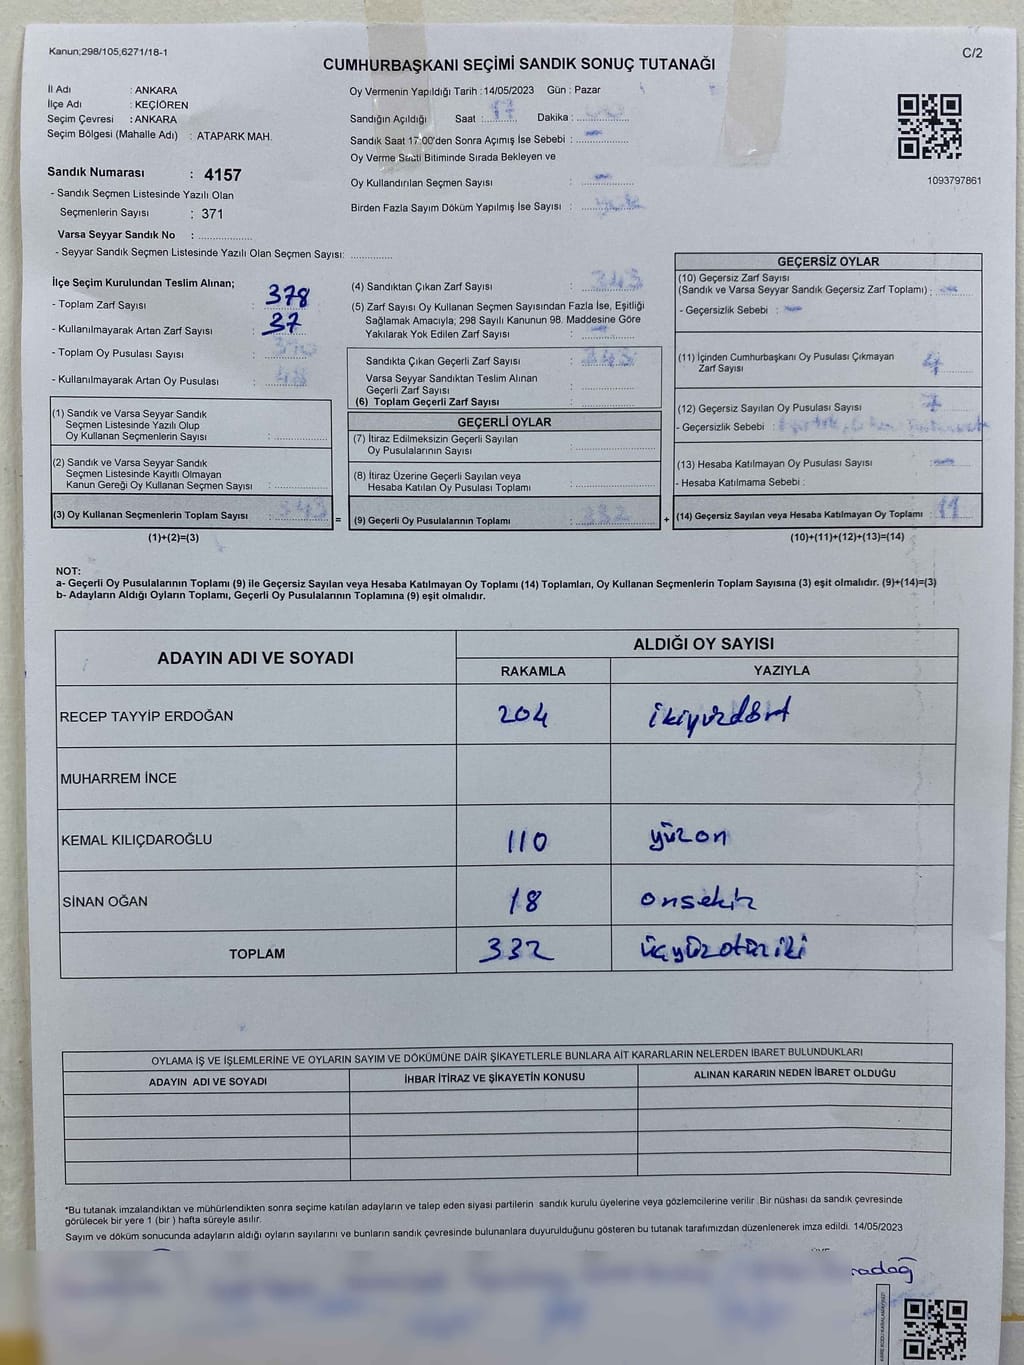 Kanun;298/105,6271/18-1
C/2
CUMHURBAŞKANI SEÇİMİ SANDIK SONUÇ TUTANAĞI
İl Adı : ANKARA
İlçe Adı : KEÇİÖREN
Seçim Çevresi : ANKARA
Seçim Bölgesi (Mahalle Adı) : ATAPARK MAH.
Sandık Numarası : 4157
- Sandık Seçmen Listesinde Yazılı Olan
Seçmenlerin Sayısı : 371
Varsa Seyyar Sandık No :
- Seyyar Sandık Seçmen Listesinde Yazılı Olan Seçmen Sayısı:
Oy Vermenin Yapıldığı Tarih :14/05/2023 Gün : Pazar
Sandığın Açıldığı Saat : 17 Dakika : 00
Sandık Saat 17:00'den Sonra Açımış İse Sebebi :
Oy Verme Saati Bitiminde Sırada Bekleyen ve
Oy Kullandırılan Seçmen Sayısı :
Birden Fazla Sayım Döküm Yapılmış İse Sayısı :
1093797861
İlçe Seçim Kurulundan Teslim Alınan;
- Toplam Zarf Sayısı : 378
- Kullanılmayarak Artan Zarf Sayısı : 37
- Toplam Oy Pusulası Sayısı :
- Kullanılmayarak Artan Oy Pusulası : 48
(1) Sandık ve Varsa Seyyar Sandık
Seçmen Listesinde Yazılı Olup
Oy Kullanan Seçmenlerin Sayısı :
(2) Sandık ve Varsa Seyyar Sandık
Seçmen Listesinde Kayıtlı Olmayan
Kanun Gereği Oy Kullanan Seçmen Sayısı :
(3) Oy Kullanan Seçmenlerin Toplam Sayısı : 343
(1)+(2)=(3)
(4) Sandıktan Çıkan Zarf Sayısı : 343
(5) Zarf Sayısı Oy Kullanan Seçmen Sayısından Fazla İse, Eşitliği
Sağlamak Amacıyla, 298 Sayılı Kanunun 98. Maddesine Göre
Yakılarak Yok Edilen Zarf Sayısı :
Sandıkta Çıkan Geçerli Zarf Sayısı : 343
Varsa Seyyar Sandıktan Teslim Alınan
Geçerli Zarf Sayısı :
(6) Toplam Geçerli Zarf Sayısı :
GEÇERLİ OYLAR
(7) İtiraz Edilmeksizin Geçerli Sayılan
Oy Pusulalarının Sayısı :
(8) İtiraz Üzerine Geçerli Sayılan veya
Hesaba Katılan Oy Pusulası Toplamı :
= (9) Geçerli Oy Pusulalarının Toplamı : 332 +
GEÇERSİZ OYLAR
(10) Geçersiz Zarf Sayısı
(Sandık ve Varsa Seyyar Sandık Geçersiz Zarf Toplamı) :
- Geçersizlik Sebebi :
(11) İçinden Cumhurbaşkanı Oy Pusulası Çıkmayan
Zarf Sayısı : 4
(12) Geçersiz Sayılan Oy Pusulası Sayısı : 7
- Geçersizlik Sebebi :
(13) Hesaba Katılmayan Oy Pusulası Sayısı :
- Hesaba Katılmama Sebebi :
(14) Geçersiz Sayılan veya Hesaba Katılmayan Oy Toplamı : 11
(10)+(11)+(12)+(13)=(14)
NOT:
a- Geçerli Oy Pusulalarının Toplamı (9) ile Geçersiz Sayılan veya Hesaba Katılmayan Oy Toplamı (14) Toplamları, Oy Kullanan Seçmenlerin Toplam Sayısına (3) eşit olmalıdır. (9)+(14)=(3)
b- Adayların Aldığı Oyların Toplamı, Geçerli Oy Pusulalarının Toplamına (9) eşit olmalıdır.
ADAYIN ADI VE SOYADI
ALDIĞI OY SAYISI
RAKAMLA YAZIYLA
RECEP TAYYİP ERDOĞAN 204 ikiyüzdört
MUHARREM İNCE
KEMAL KILIÇDAROĞLU 110 yüzon
SİNAN OĞAN 18 onsekiz
TOPLAM 332 üçyüzotuziki
OYLAMA İŞ VE İŞLEMLERİNE VE OYLARIN SAYIM VE DÖKÜMÜNE DAİR ŞİKAYETLERLE BUNLARA AİT KARARLARIN NELERDEN İBARET BULUNDUKLARI
ADAYIN ADI VE SOYADI İHBAR İTİRAZ VE ŞİKAYETİN KONUSU ALINAN KARARIN NEDEN İBARET OLDUĞU
*Bu tutanak imzalandıktan ve mühürlendikten sonra seçime katılan adayların ve talep eden siyasi partilerin sandık kurulu üyelerine veya gözlemcilerine verilir .Bir nüshası da sandık çevresinde
görülecek bir yere 1 (bir ) hafta süreyle asılır.
Sayım ve döküm sonucunda adayların aldığı oyların sayılarını ve bunların sandık çevresinde bulunanlara duyurulduğunu gösteren bu tutanak tarafımızdan düzenlenerek imza edildi. 14/05/2023
radağ